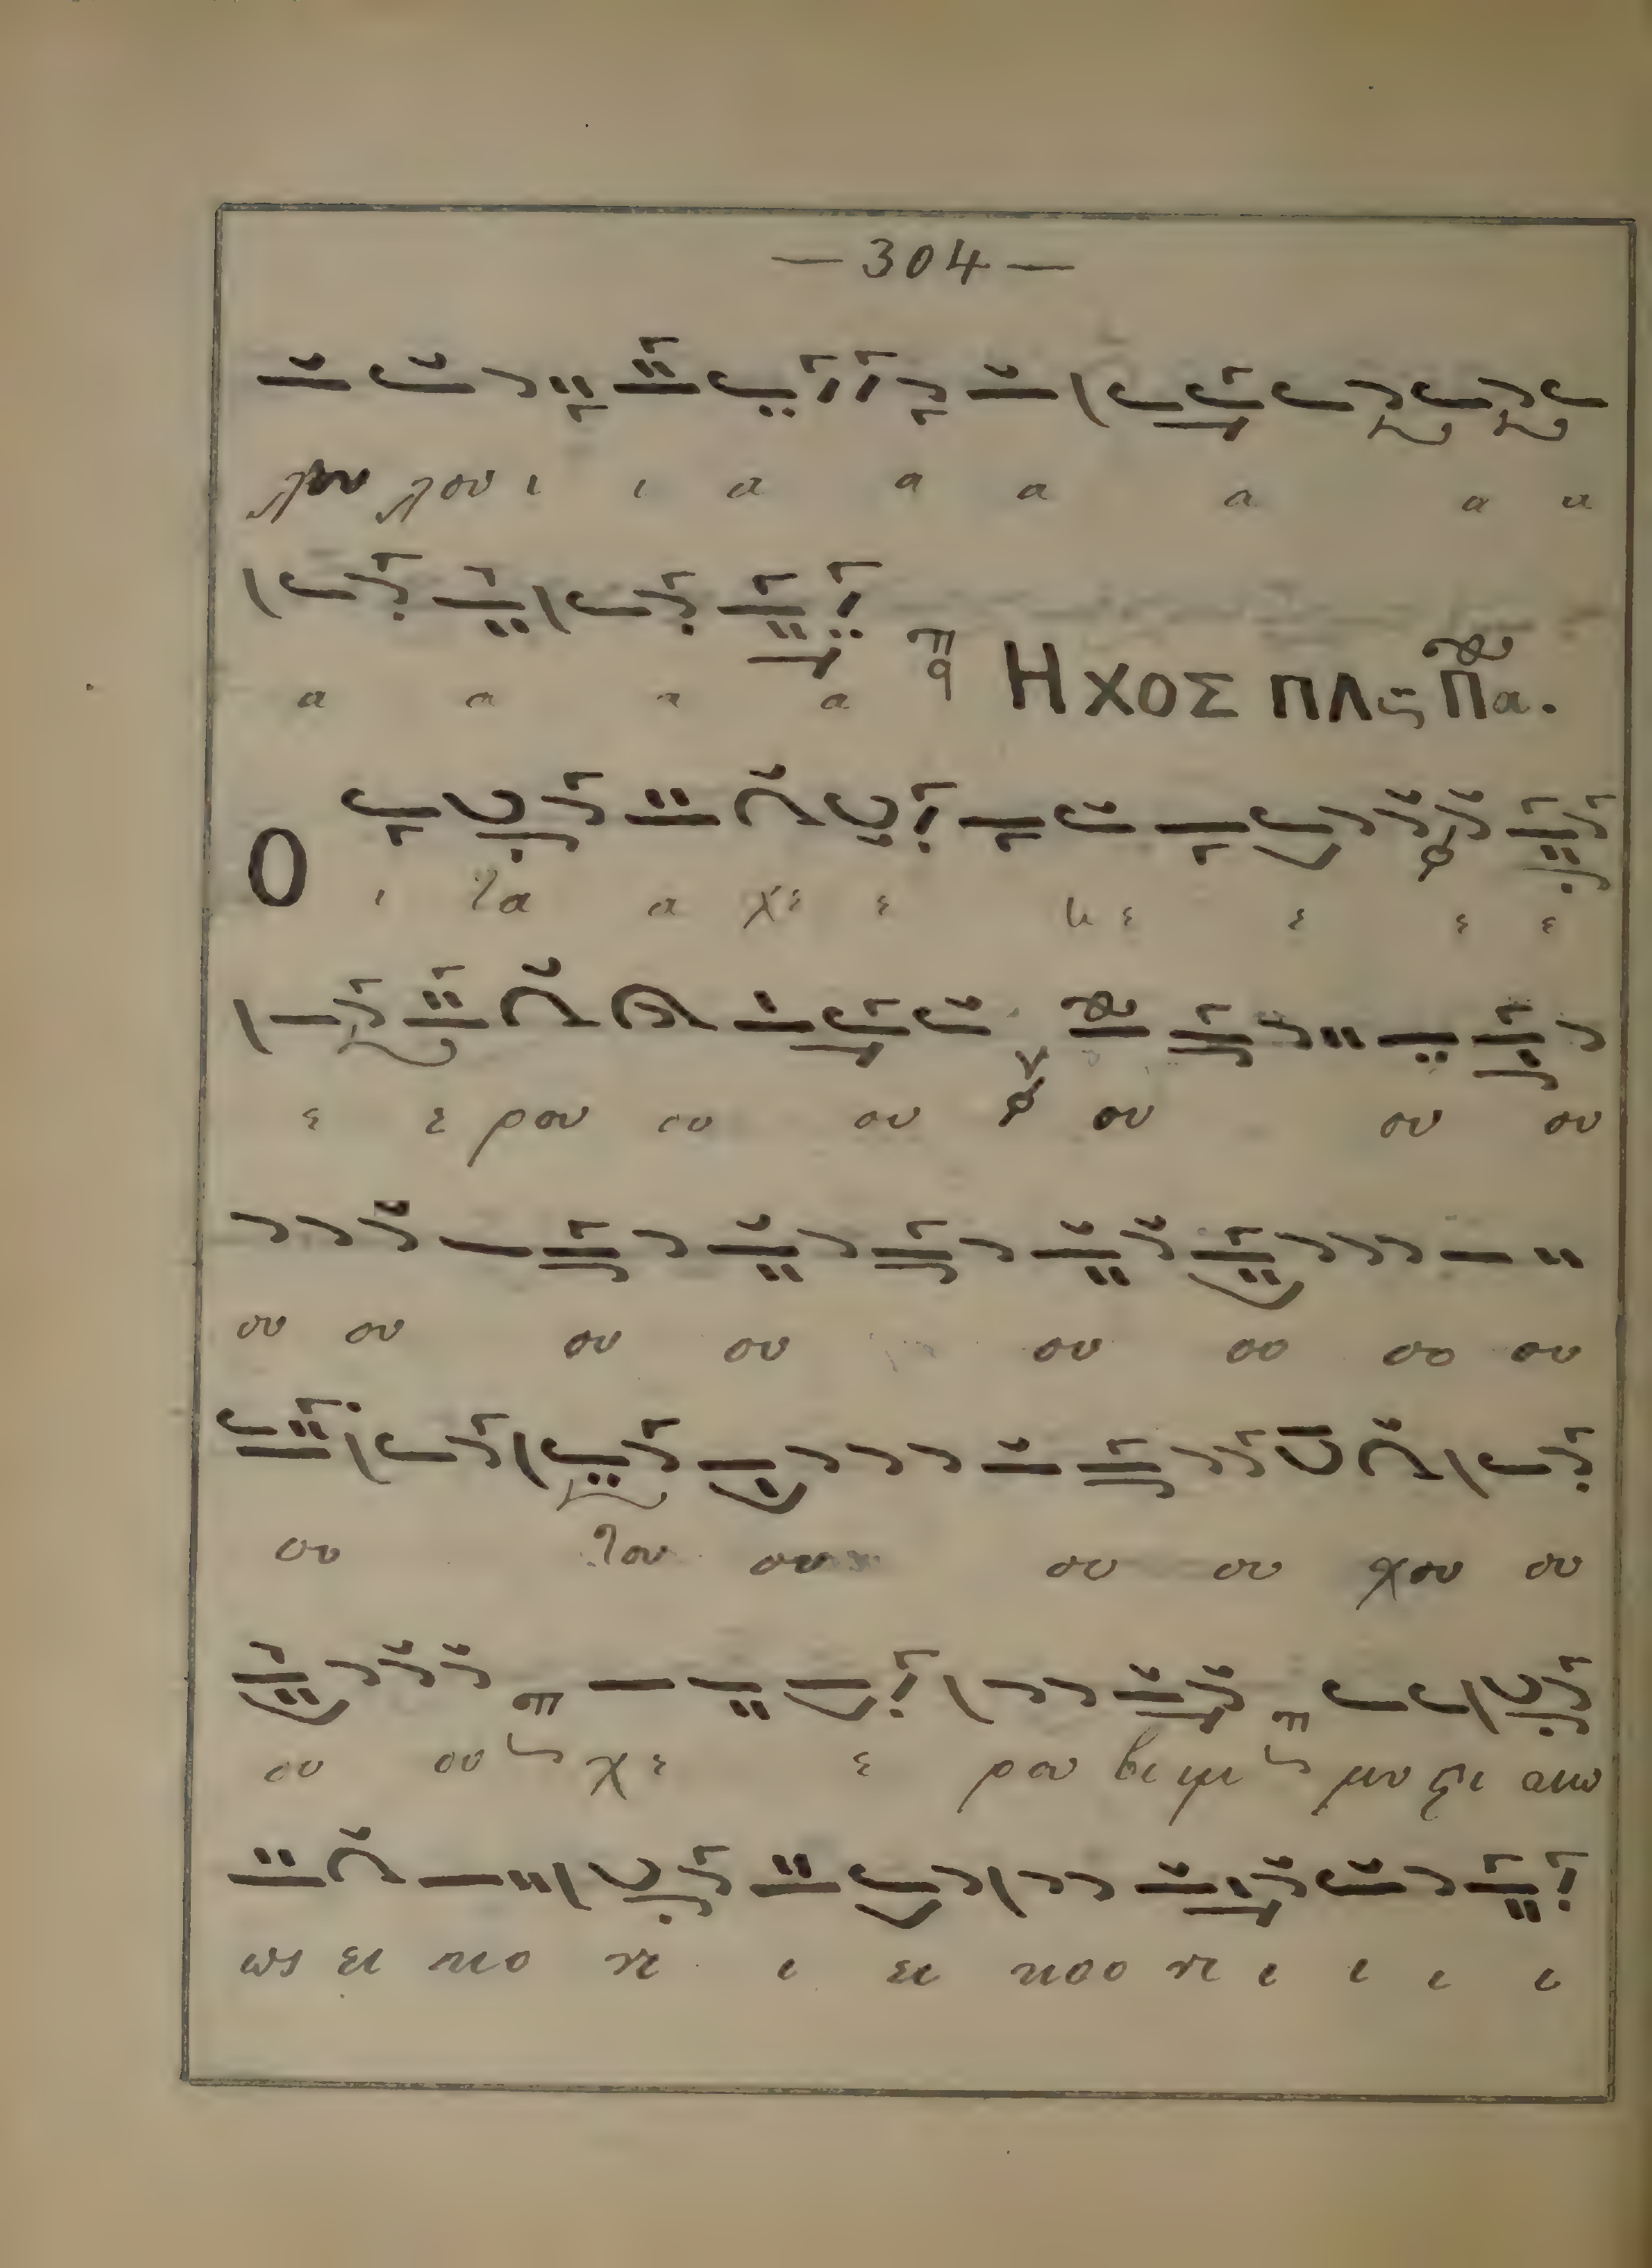 — 304 —
λου λου ι ι α α α α α α
α α α α ΗΧΟΣ ΠΛ Πα.
Ο ι τα α χε ε κε ε ε ε
ε ε ρου ου ου ου ου ου
ου ου ου ου ου ου ου ου
ου του ου ου ου χου ου
ου ου χε ε ρου βιμ μυ ςι ακω
ως ει κο νι ι ει κοο νι ι ι ι ι